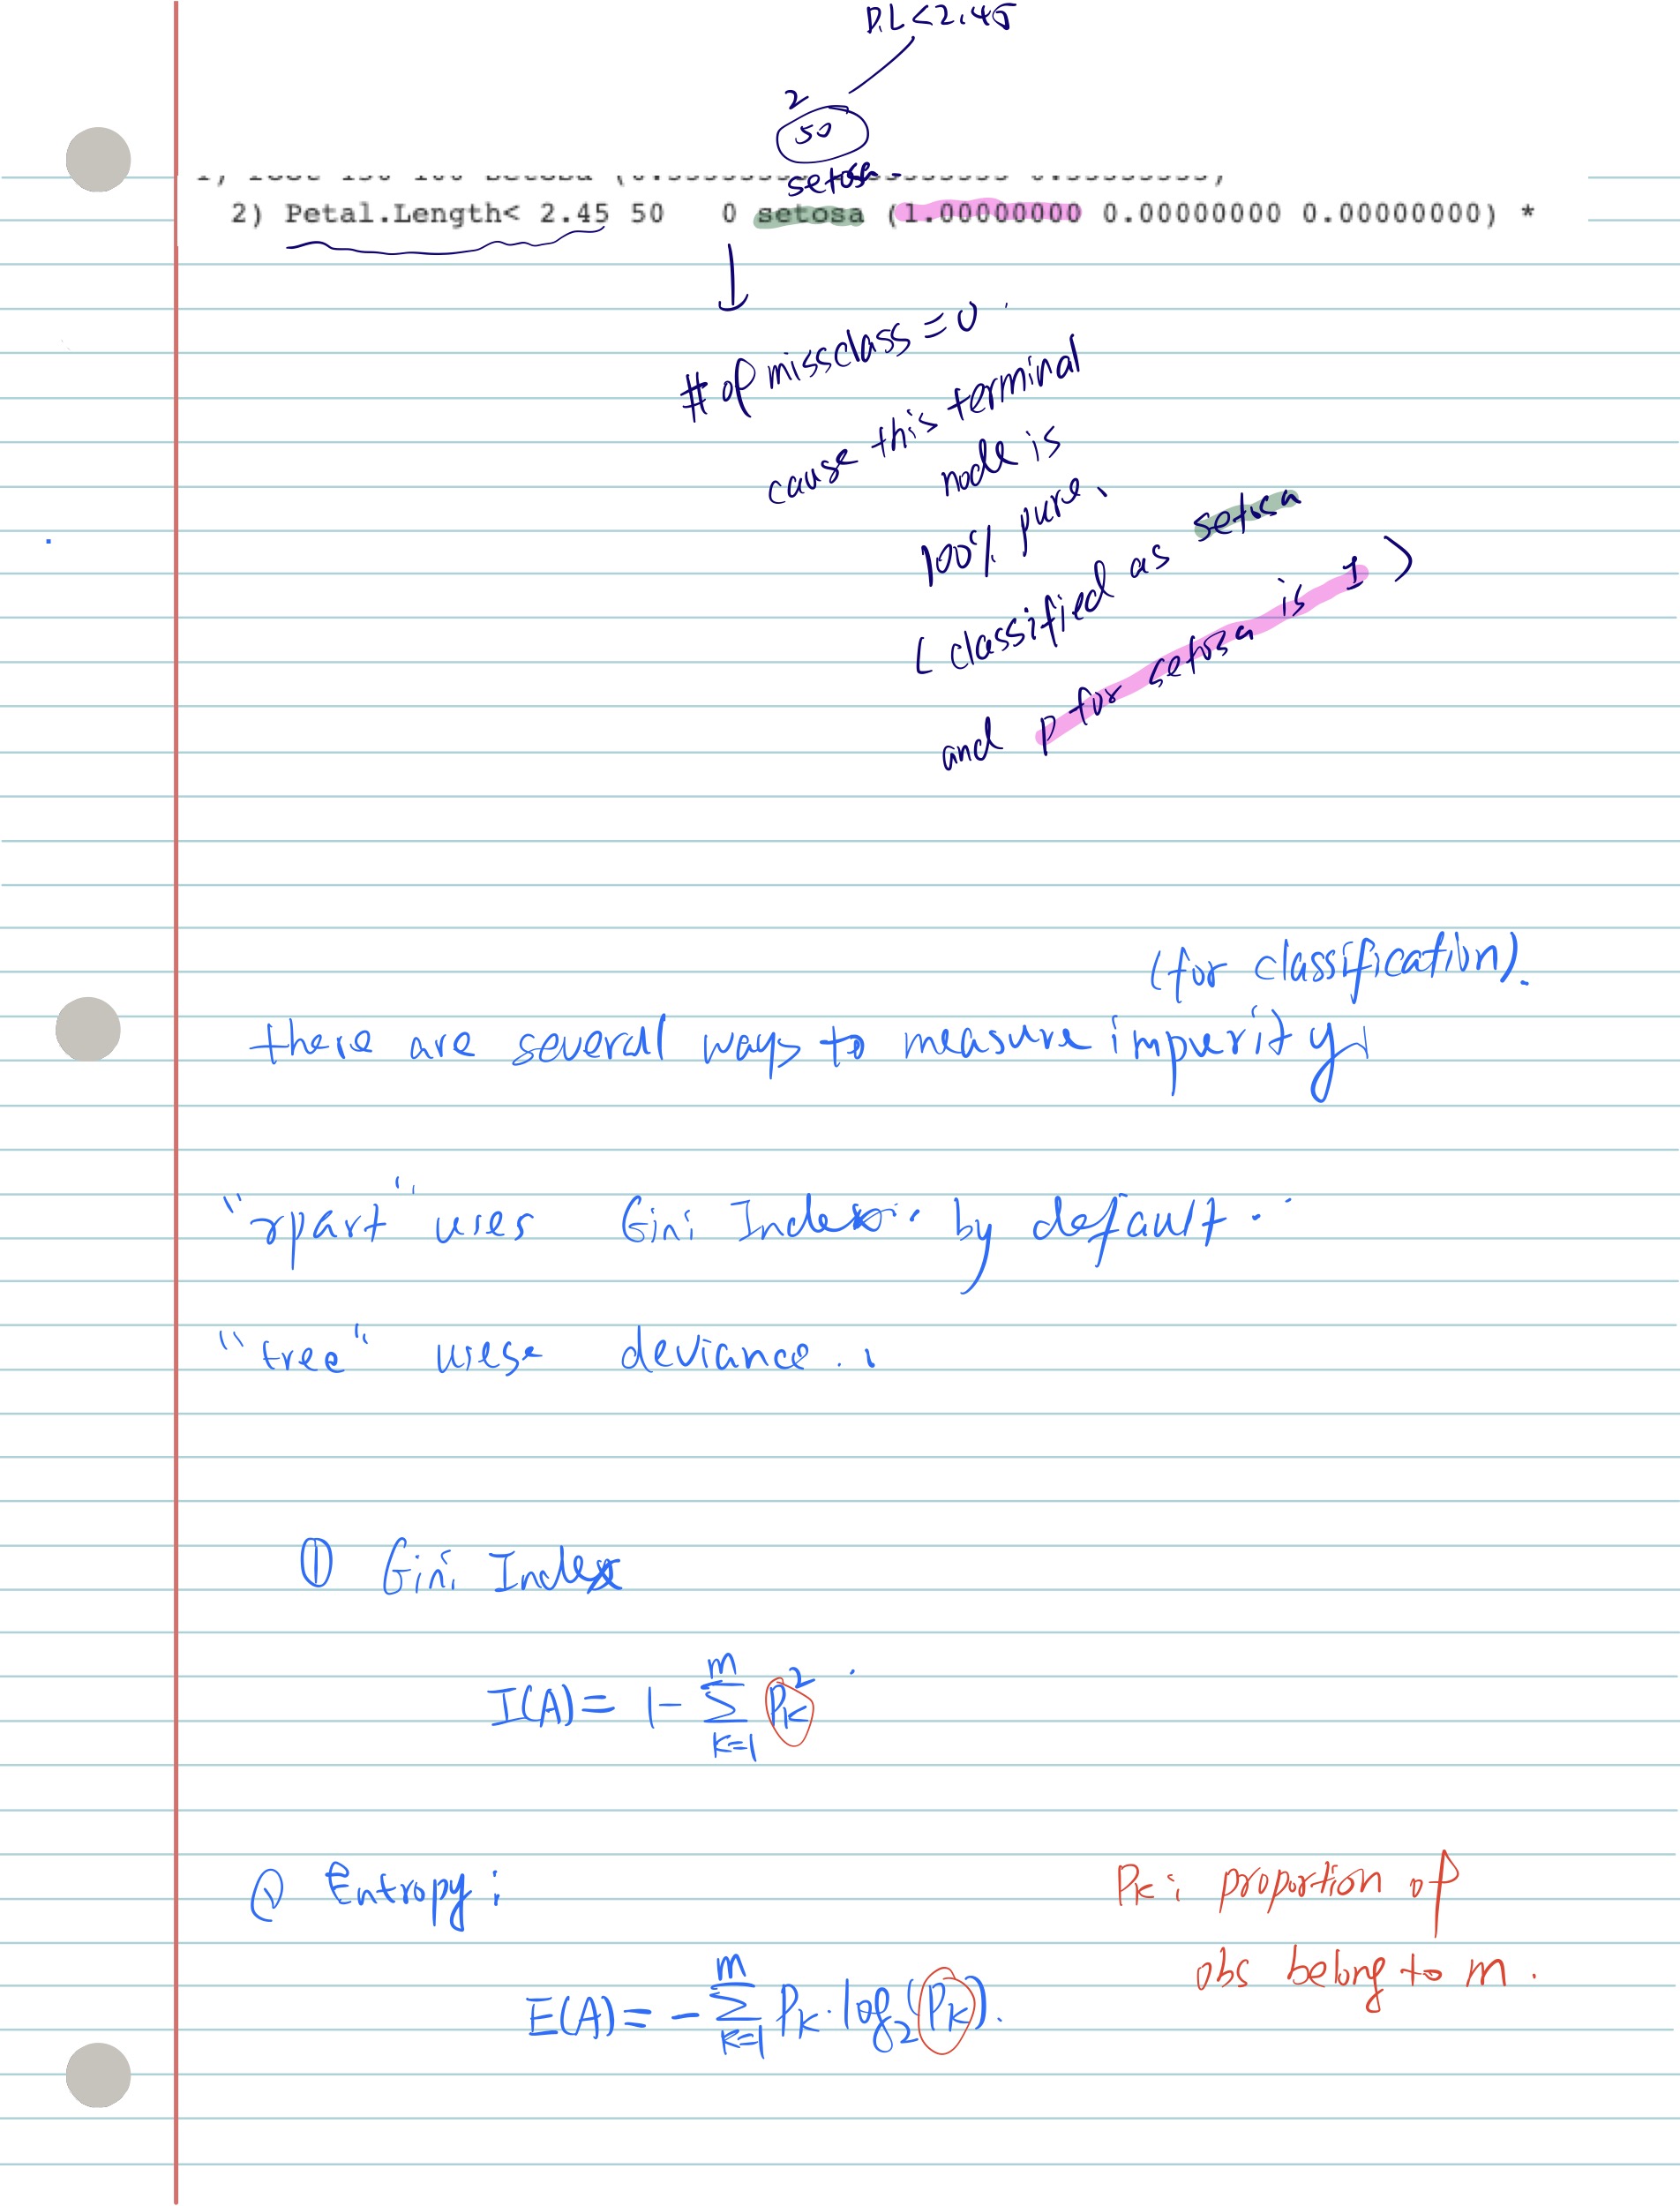 P.L<2.45
2
50
setosa.
2) Petal.Length< 2.45 50 0 setosa (1.00000000 0.00000000 0.00000000) *
# of missclass = 0
cause this terminal
node is
100% pure.
(classified as setosa
and p for setosa is 1)
(for classification).
there are several ways to measure impurity
"rpart" uses Gini Index by default.
"tree" uses deviance.
① Gini Index
I(A) = 1 - \sum_{k=1}^{m} P_k^2
② Entropy:
P_k: proportion of
obs belong to m.
E(A) = - \sum_{k=1}^{m} P_k \cdot log_2(P_k).